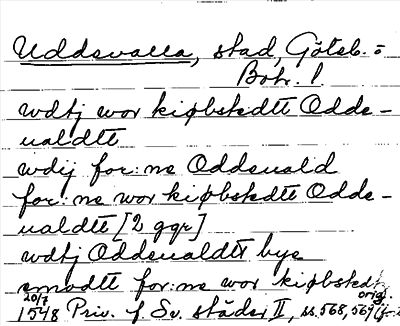 Uddevalla, stad, Göteb. o
Boh. l.
wdtj wor kiøbstedtt Odde-
ualdtt
wdij for:ne Oddeuald
for:ne wor kiøbstedtt Odde-
ualdtt [2 ggr]
wdtj Oddeualdtt bye
emodtt for:ne wor kiøbsted
20/7 orig.
1548 Priv. f. Sv. städer II, ss. 568, 569